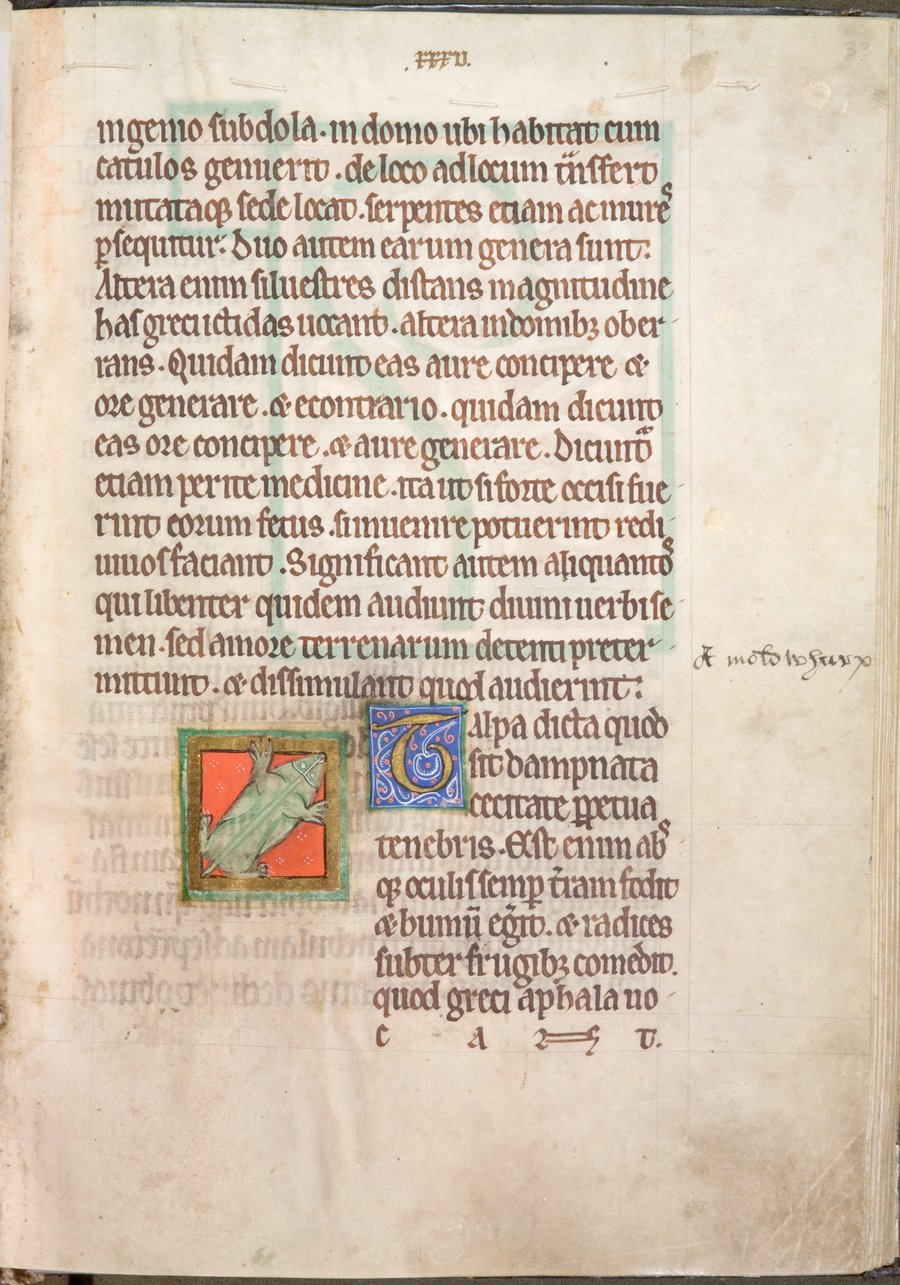 xxxv.
33
ingenio subdola. in domo ubi habitat cum
catulos genuerit. de loco ad locum t̃nsfert
mutataqꝫ sede locat. serpentes etiam ac mureˢ
ꝑsequitur: Duo autem earum genera sunt:
Altera enim siluestres distans magnitudine
has greci ictidas uocant. altera in domibꝫ ober-
rans. Quidam dicunt eas aure concipere &
ore generare. & econtrario. quidam dicunt
eas ore concipere. & aure generare. Dicunt᷑
etiam perite medicine. ita ut si forte occisi fue-
rint eorum fetus. si inuenire potuerint redi-
uiuos faciant. Significant autem aliquantoˢ
qui libenter quidem audiunt diuini uerbi se-
men. sed amore terrenarum detenti preter-
mittunt. & dissimulant quod audierint:
A moldwharp
Talpa dicta quod
sit dampnata
cecitate ꝑpetua
tenebris. Est enim abˢ
qꝫ oculis semꝑ t̃ram fodit
& humũ eg̃it. & radices
subter frugibꝫ comedit.
quod greci aphala uo-
c a n t.